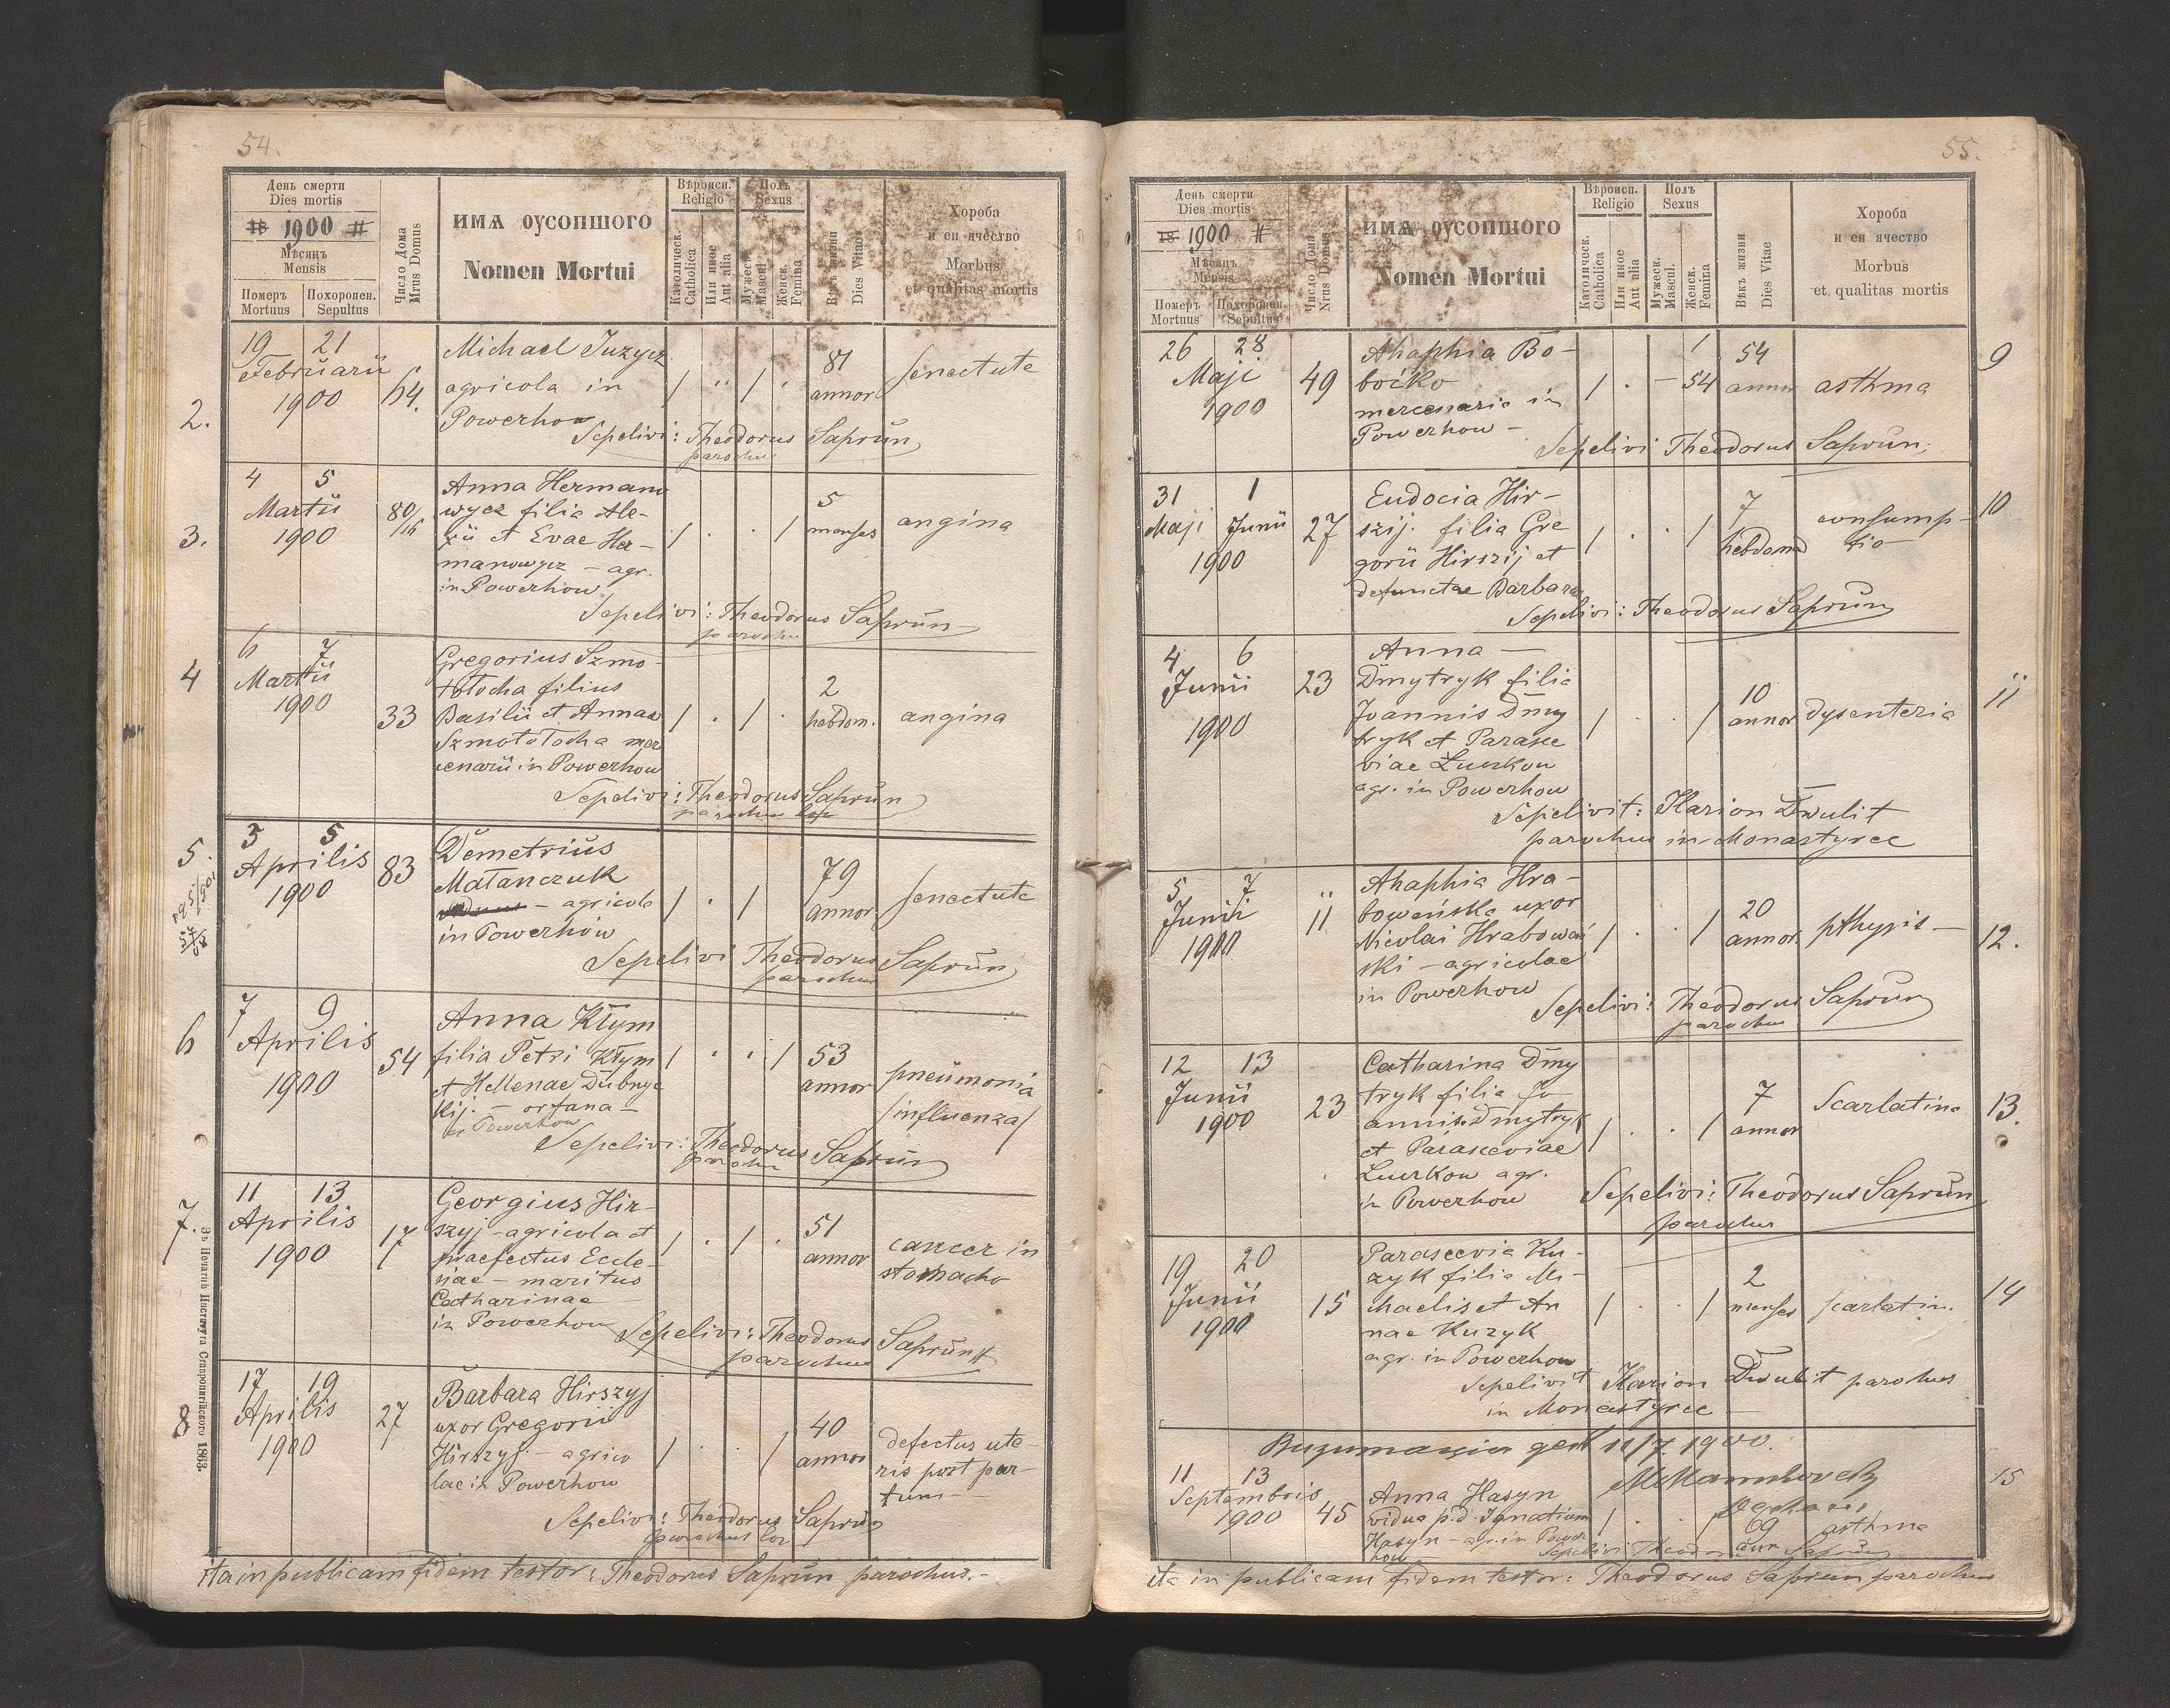 54.
День смерти
Dies mortis
18 1900 #
Мѣсяцъ
Mensis
Померъ
Mortuus
Похоронен.
Sepultus
Число Дома
Nrus Domus
ИМѦ ОУСОПШОГО
Nomen Mortui
Вѣроисп.
Religio
Католическ.
Catholica
Или иное
Aut alia
Полъ
Sexus
Мужеск.
Mascul.
Женск.
Femina
Вѣкъ жизни
Dies Vitae
Хороба
и еи ячество
Morbus
et qualitas mortis
2.
19 21
Februarii
1900
64.
Michael Juzycz
agricola in
Powerhow
81
annor
senectute
Sepelivi: Theodorus Saprun
parochus
3.
4 5
Martii
1900
80/16
Anna Hermano
wycz filia Ale-
xii et Evae Her-
manowycz - agr.
in Powerhow
5
menses
angina
Sepelivi: Theodorus Saprun
parochus
4
6 7
Martii
1900
33
Gregorius Szmo-
tołocha filius
Basilii et Annae
Szmotołocha mer
cenarii in Powerhow
2
hebdom.
angina
Sepelivi: Theodorus Saprun
parochus
5.
3 5
Aprilis
1900
83
Demetrius
Matanczuk
- agricola
in Powerhow
79
annor
senectute
Sepelivi Theodorus Saprun
parochus
6
7 9
Aprilis
1900
54
Anna Kłym
filia Petri Kłym
et Hellenae Dubnyc
kij. - orfana -
in Powerhow
53
annor
pneumonia
/influenza/
Sepelivi: Theodorus Saprun
parochus
7.
11 13
Aprilis
1900
17
Georgius Hir-
szyj - agricola et
praefectus Eccle-
siae - maritus
Catharinae
in Powerhow
51
annor
cancer in
stomacho
Sepelivi: Theodorus Saprun
parochus
8
17 19
Aprilis
1900
27
Barbara Hirszyj
uxor Gregorii
Hirszyj - agrico
lae in Powerhow
40
annor
defectus ute-
ris post par-
tum -
Sepelivi: Theodorus Saprun
parochus loc
ita in publicam fidem testor: Theodorus Saprun parochus.-
Зъ Печатнѣ Института Ставропигійского 1863.
55.
День смерти
Dies mortis
18 1900 #
Мѣсяцъ
Mensis
Померъ
Mortuus
Похоронен.
Sepultus
Число Дома
Nrus Domus
ИМѦ ОУСОПШОГО
Nomen Mortui
Вѣроисп.
Religio
Католическ.
Catholica
Или иное
Aut alia
Полъ
Sexus
Мужеск.
Mascul.
Женск.
Femina
Вѣкъ жизни
Dies Vitae
Хороба
и еи ячество
Morbus
et qualitas mortis
26 28
Maji
1900
49
Ahaphia Bo-
boćko
mercenaria in
Powerhow -
54
54
annor
asthma
9
Sepelivi Theodorus Saprun;
31 1
Maji Junii
1900
27
Eudocia Hir-
szij. filia Gre
gorii Hirszij et
defunctae Barbara
7
hebdomad
consump-
tio
10
Sepelivi: Theodorus Saprun
4 6
Junii
1900
23
Anna -
Dmytryk filia
Joannis Dmy
tryk et Parasce
viae Łuczkow
agr. in Powerhow
10
annor
dysenteria
11
Sepelivit: Ilarion Dwulit
parochus in Monastyrec
5 7
Junii
1900
11
Ahaphia Hra-
boweńska uxor
Nicolai Hraboweń
ski - agricolae
in Powerhow
20
annor.
pthysis -
12.
Sepelivi: Theodorus Saprun
parochus
12 13
Junii
1900
23
Catharina Dmy
tryk filia Jo
annis Dmytryk
et Parasceviae
Łuczkow agr.
in Powerhow
7
annor
Scarlatina
13.
Sepelivi: Theodorus Saprun
parochus
19 20
Junii
1900
15
Parascevia Ku-
zyk filia Mi-
chaelis et An
nae Kuzyk
agr. in Powerhow
2
menses
scarlatin.
14
Sepelivit Ilarion Dwulit parochus
in Monastyrec
11/7 1900.
11 13
Septembris
1900
45
Anna Hasyn
vidua p.d. Ignatium
Hasyn - agr. in Power
how
69
ann
asthma
15
Sepelivi Theodorus Saprun
ita in publicam fidem testor: Theodorus Saprun parochus